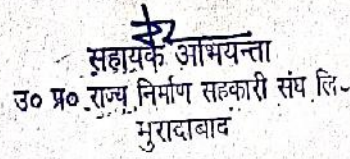 सहायक अभियन्ता
उ० प्र० राज्य निर्माण सहकारी संघ लि-
मुरादाबाद